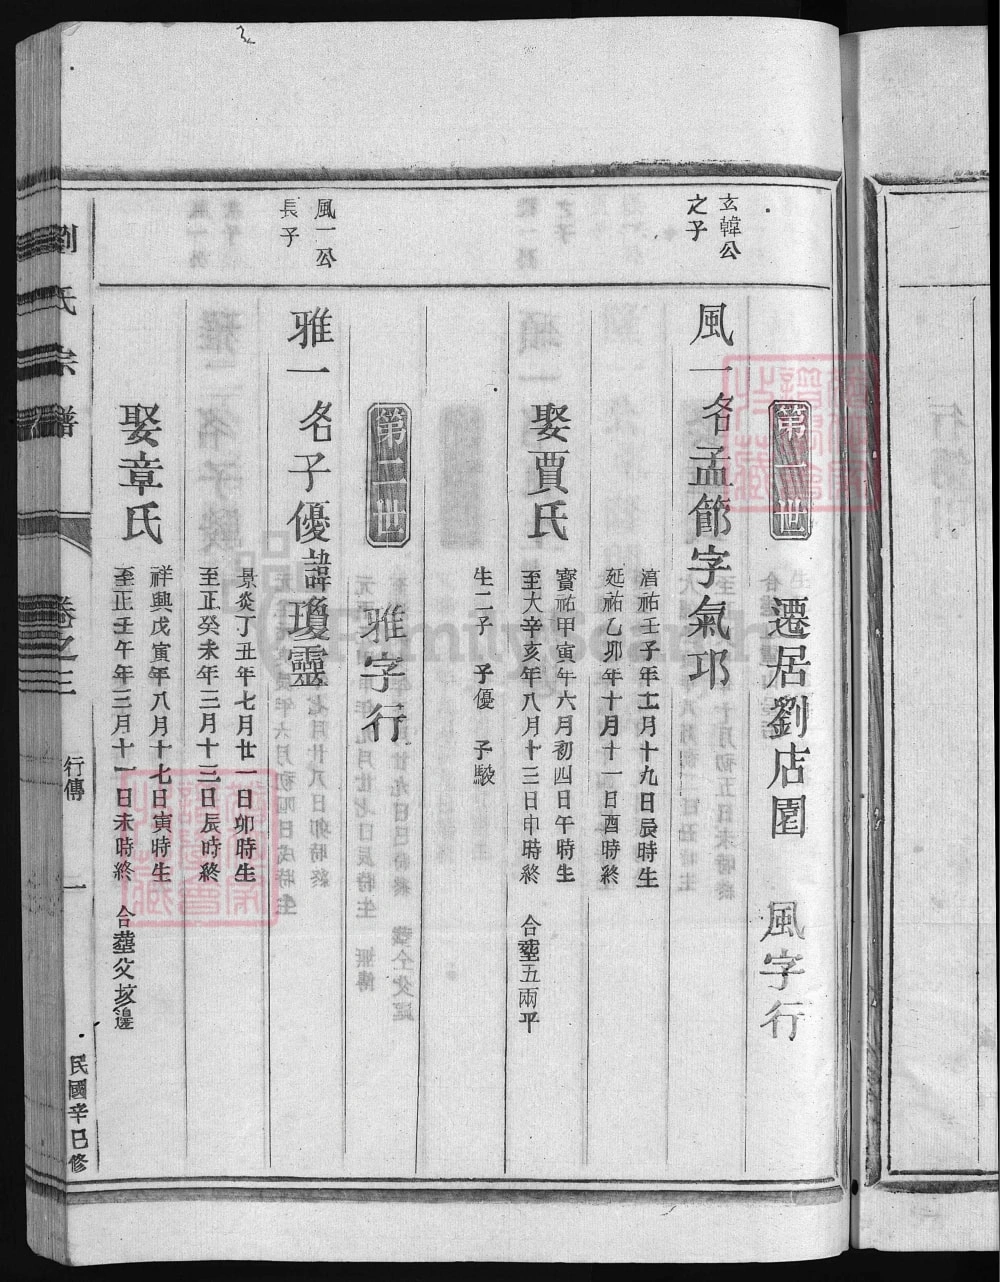 第一世　遷居劉店園　風字行
玄韓公
之子
風一名孟節字氣邛
淯祐壬子年十二月十九日辰時生
延祐乙卯年十月十一日酉時終
娶賈氏
寶祐甲寅年六月初四日午時生
至大辛亥年八月十三日申時終　合塟五兩平
生二子　子優　子駿
第二世　雅字行
風一公
長子
雅一名子優諱瓊靈
景炎丁丑年七月廿一日卯時生
至正癸未年三月十三日辰時終
娶章氏
祥興戊寅年八月十七日寅時生
至正壬午年三月十一日未時終　合塟父坟邊
劉氏宗譜
卷之三
行傳
一
民國辛巳修
FamilySearch